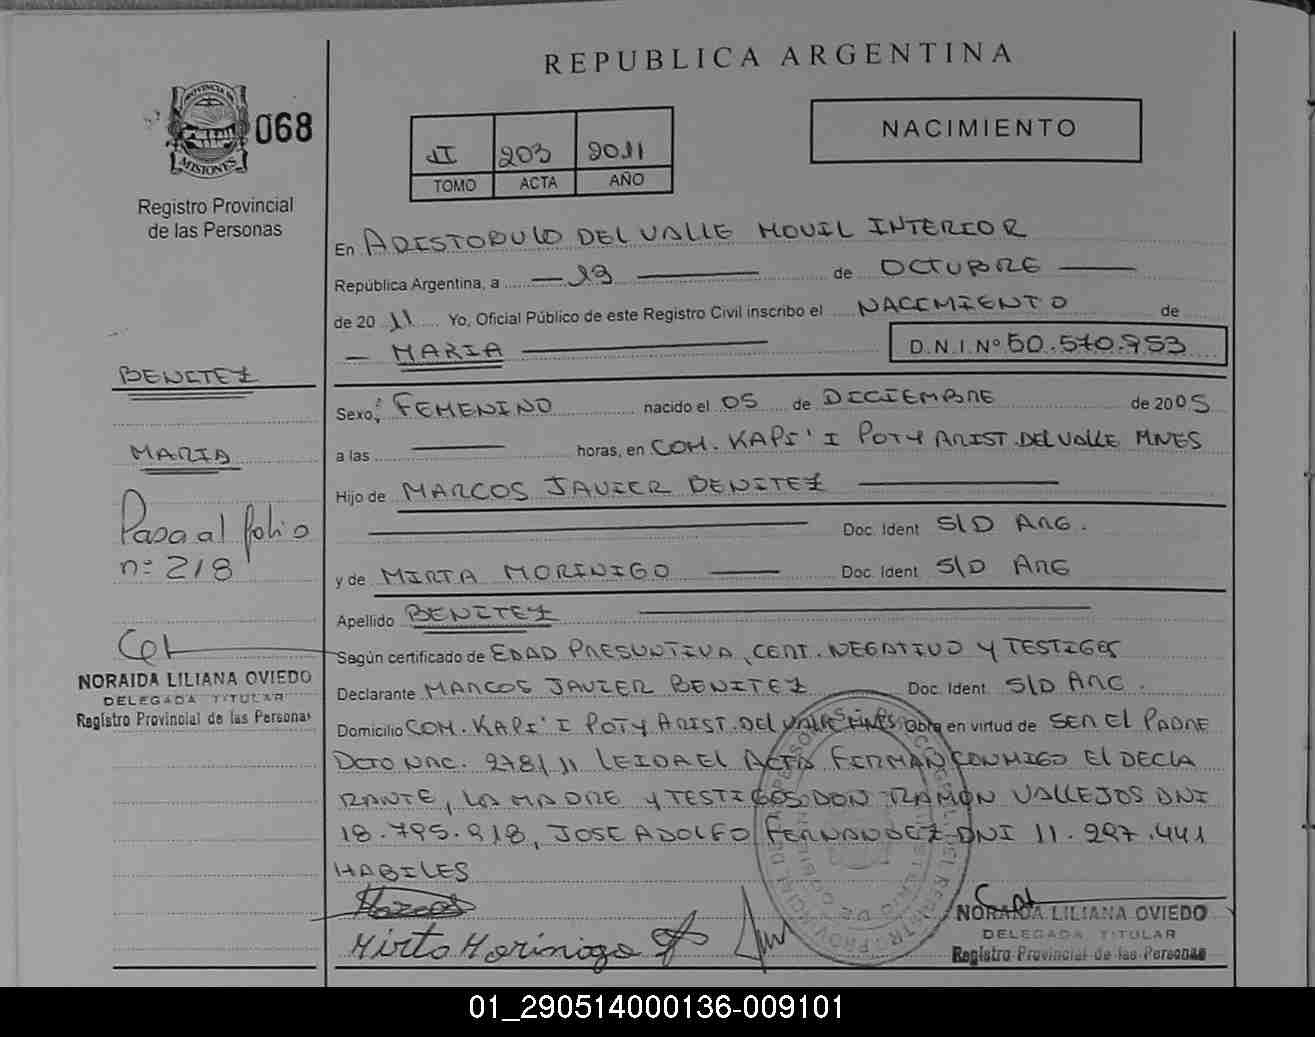 REPUBLICA ARGENTINA
PROVINCIA DE
MISIONES
068
Registro Provincial
de las Personas
II 203 2011
TOMO ACTA AÑO
NACIMIENTO
En ARISTOBULO DEL VALLE MOVIL INTERIOR
República Argentina, a 19 de OCTUBRE
de 2011 Yo, Oficial Público de este Registro Civil inscribo el NACIMIENTO de
MARIA D.N.I.Nº 50.570.953
BENITEZ
Sexo: FEMENINO nacido el 05 de DICIEMBRE de 2005
MARIA
a las horas, en COM. KAPI'I POTY ARIST. DEL VALLE MNES
Hijo de MARCOS JAVIER BENITEZ
Pasa al folio
nº 218
Doc. Ident S/D ARG.
y de MIRTA MORINIGO Doc. Ident S/D ARG
Apellido BENITEZ
Según certificado de EDAD PRESUNTIVA, CERT. NEGATIVO Y TESTIGOS
NORAIDA LILIANA OVIEDO
DELEGADA TITULAR
Registro Provincial de las Personas
Declarante MARCOS JAVIER BENITEZ Doc. Ident. S/D ARG.
Domicilio COM. KAPI'I POTY ARIST. DEL VALLE MNES Obra en virtud de SER EL PADRE
DCTO NAC. 278/11 LEIDA EL ACTA FIRMAN CONMIGO EL DECLA
RANTE, LA MADRE Y TESTIGOS DON RAMON VALLEJOS DNI
18.795.918, JOSE ADOLFO FERNANDEZ DNI 11.297.441
HABILES
Marcos
Mirta Morinigo
NORAIDA LILIANA OVIEDO
DELEGADA TITULAR
Registro Provincial de las Personas
01_290514000136-009101